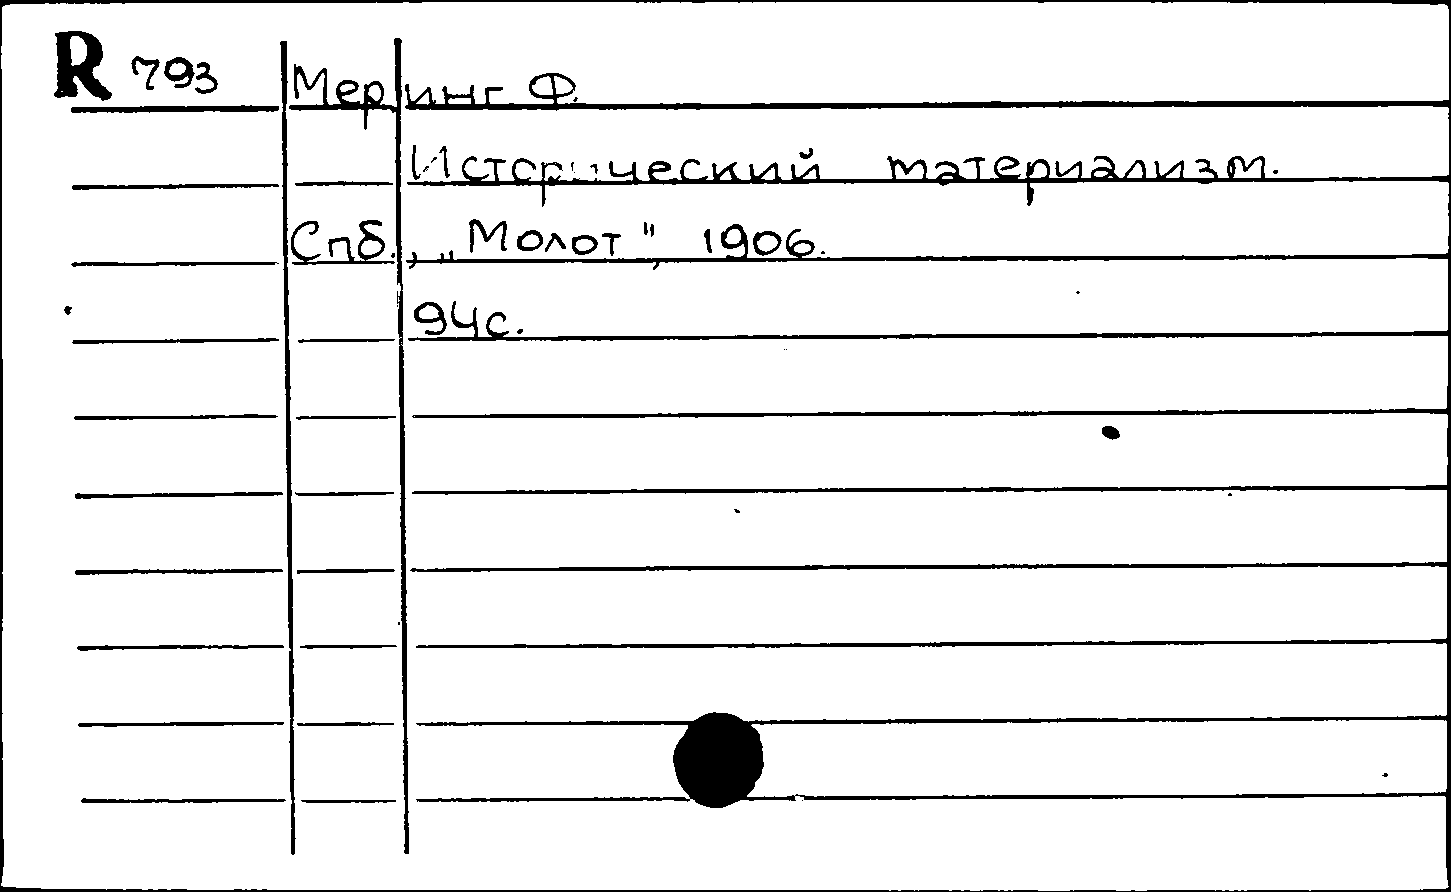 R 793 Меринг Ф.
Исторический материализм.
Спб., „Молот", 1906.
94с.